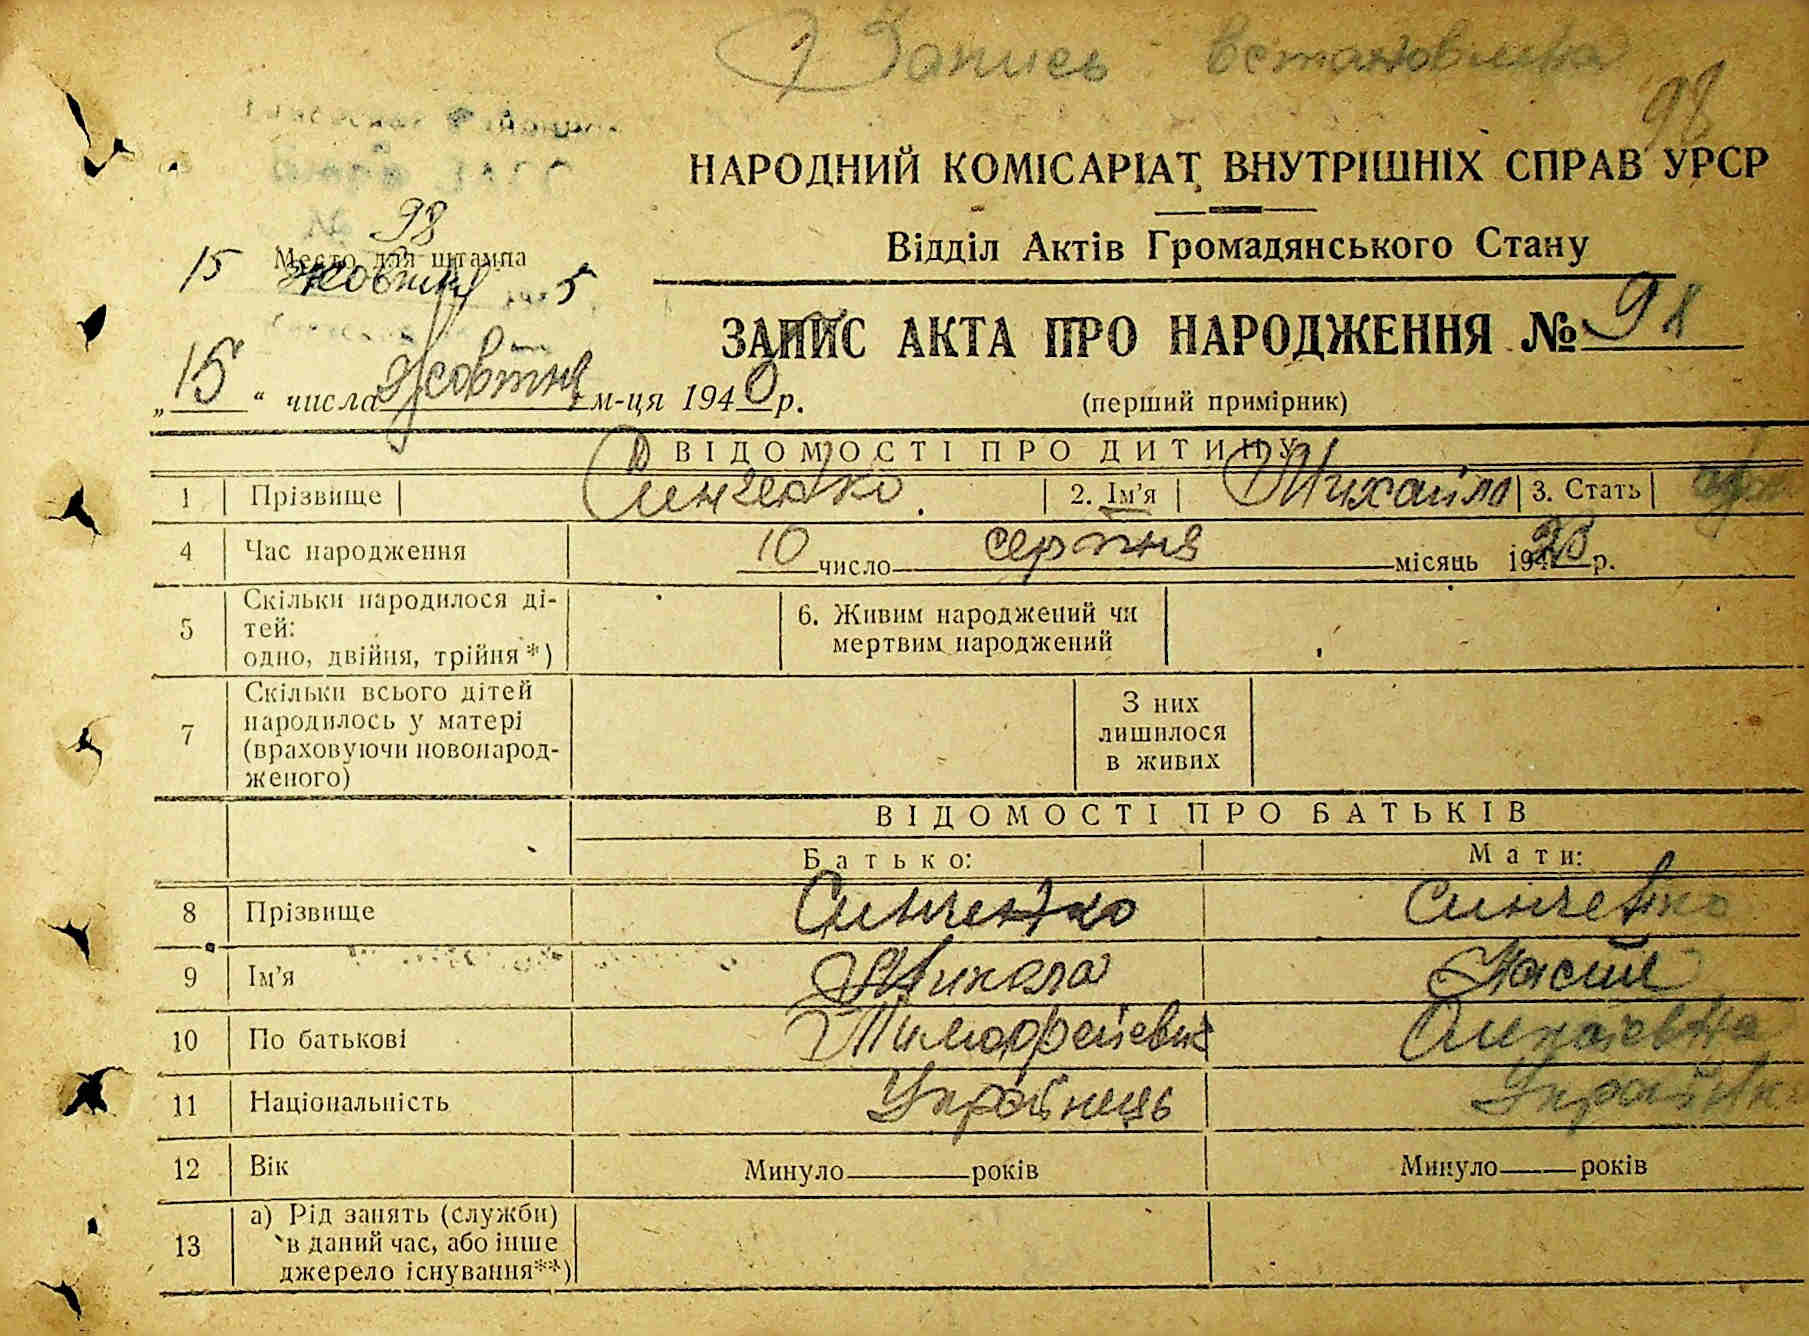 Запись встановлена
98
НАРОДНИЙ КОМІСАРІАТ ВНУТРІШНІХ СПРАВ УРСР
98
Место для штампа
15 жовтня 5
Відділ Актів Громадянського Стану
ЗАПИС АКТА ПРО НАРОДЖЕННЯ № 98
„15“ числа Жовтня м-ця 1940 р.
(перший примірник)
ВІДОМОСТІ ПРО ДИТИНУ
1 Прізвище Синченко 2. Ім'я Михайло 3. Стать
4 Час народження 10 число серпня місяць 1923 р.
5 Скільки народилося ді-
тей:
одно, двійня, трійня*)
6. Живим народжений чи
мертвим народжений
7 Скільки всього дітей
народилось у матері
(враховуючи новонарод-
женого)
З них
лишилося
в живих
ВІДОМОСТІ ПРО БАТЬКІВ
Батько: Мати:
8 Прізвище Синченко Синченко
9 Ім'я Микола
10 По батькові Тимофеієвич
11 Національність Українець Українка
12 Вік Минуло років Минуло років
13 а) Рід занять (служби)
в даний час, або інше
джерело існування**)